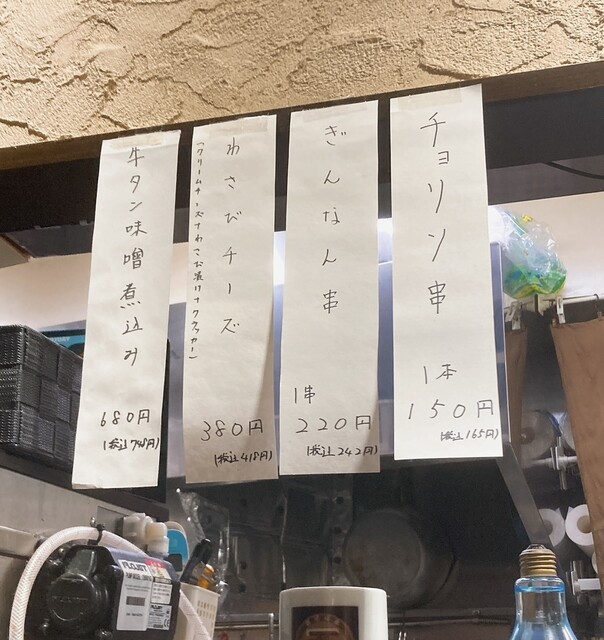 チョリソ串
1本
150円
(税込165円)
ぎんなん串
1串
220円
(税込242円)
わさびチーズ
(クリームチーズ+わさび漬け+クラッカー)
380円
(税込418円)
牛タン味噌煮込み
680円
(税込748円)
FLOJET